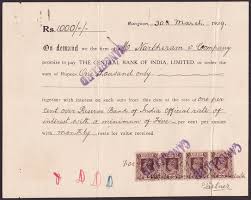 Rangoon, 30th March, 1939.
Rs. 1000/-/-
On demand we the firm of Messrs Nartheram & Company
promise to pay THE CENTRAL BANK OF INDIA, LIMITED, or order the
sum of Rupees One thousand only
together with interest on such sum from this date at the rate of one per
cent over Reserve Bank of India official rate of
interest with a minimum of Five per cent per annum with
monthly rests for value received.
CANCELLED
For
Partner